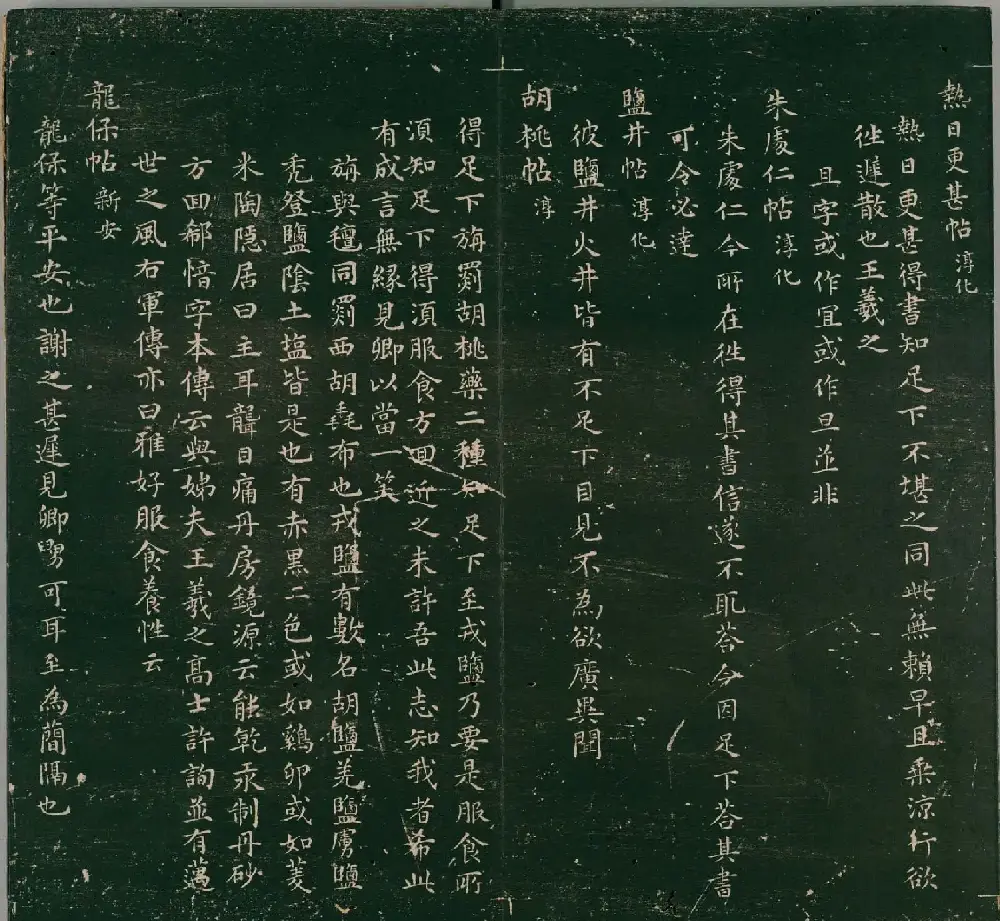 熱日更甚帖 淳化
熱日更甚得書知足下不堪之同此無賴早且乘涼行欲
往遲散也王羲之
且字或作宜或作旦並非
朱處仁帖 淳化
朱處仁今所在往得其書信遂不取荅今因足下荅其書
可令必達
鹽井帖 淳化
彼鹽井火井皆有不足下目見不為欲廣異聞
胡桃帖 淳
得足下旃罽胡桃藥二種知足下至戎鹽乃要是服食所
須知足下得須服食方回近之未許吾此志知我者希此
有成言無緣見卿以當一笑
旃與氊同罽西胡毳布也戎鹽有數名胡鹽羌鹽虜鹽
禿登鹽陰土塩皆是也有赤黑二色或如鷄卵或如菱
米陶隱居曰主耳聾目痛丹房鏡源云能乾汞制丹砂
方回郗愔字本傳云與娣夫王羲之高士許詢並有邁
世之風右軍傳亦曰雅好服食養性云
龍保帖 新安
龍保等平安也謝之甚遲見卿舅可耳至為簡隔也